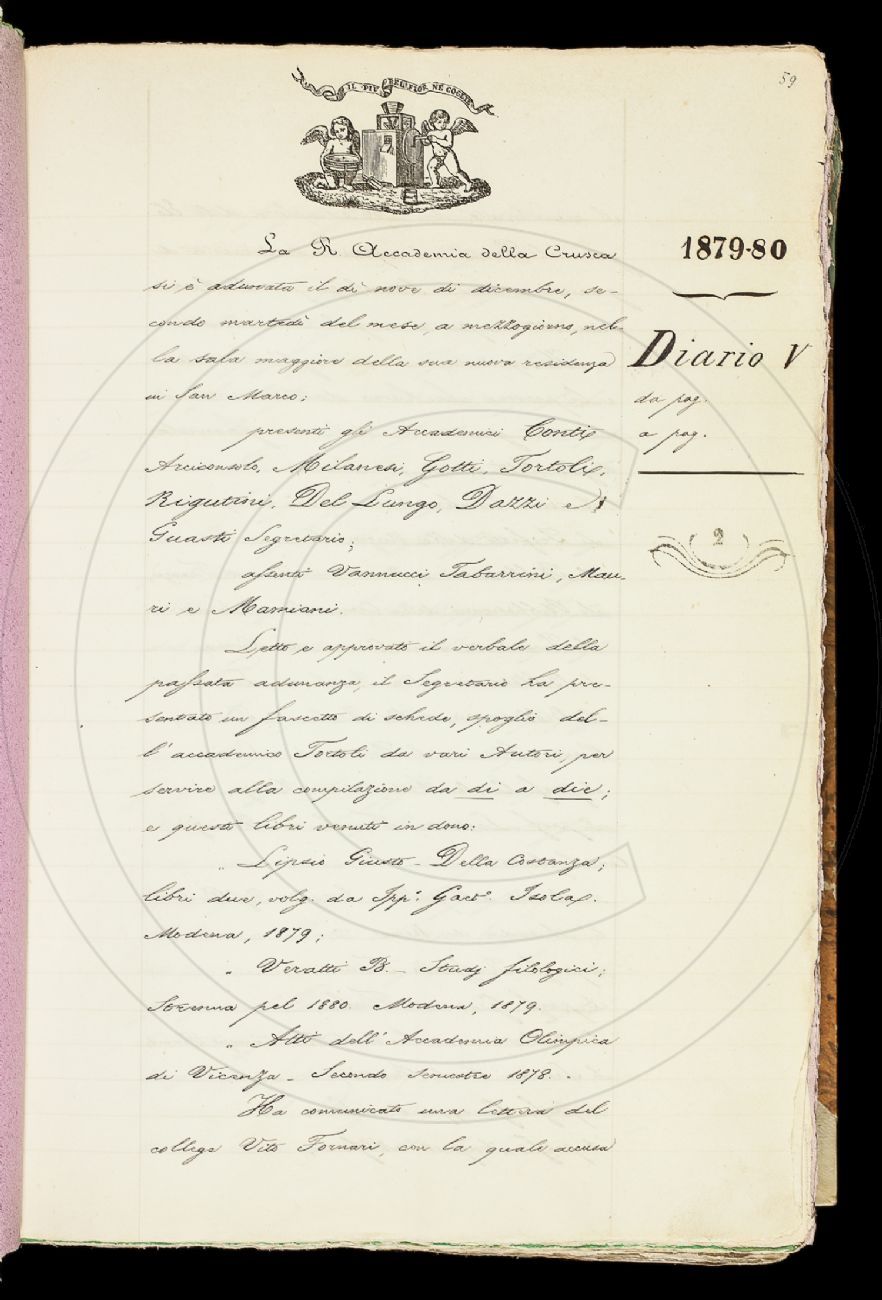 59
IL PIÙ BEL FIOR NE COGLIE
La R. Accademia della Crusca
1879-80
si è adunata il dì nove di dicembre, se-
condo martedì del mese, a mezzogiorno, nel-
Diario V
la sala maggiore della sua nuova residenza
in San Marco;
da pag.
presenti gli Accademici Conti
a pag.
Arciconsolo, Milanesi, Gotti, Tortoli,
Rigutini, Del Lungo, Dazzi e
Guasti Segretario;
2
assenti Vannucci, Tabarrini, Mau-
ri e Mamiani.
Letto e approvato il verbale della
passata adunanza, il Segretario ha pre-
sentato un fascetto di schede, spoglio del-
l'accademico Tortoli da vari Autori, per
servire alla compilazione da di a die;
e questi libri venuti in dono:
„ Lipsio Giusto - Della Costanza;
libri due, volg. da Ipp.° Gaet.° Isola.
Modena, 1879;
„ Veratti B. - Studj filologici;
Strenna pel 1880. Modena, 1879.
„ Atti dell'Accademia Olimpica
di Vicenza - Secondo semestre 1878. -
Ha comunicato una lettera del
collega Vito Fornari, con la quale accusa